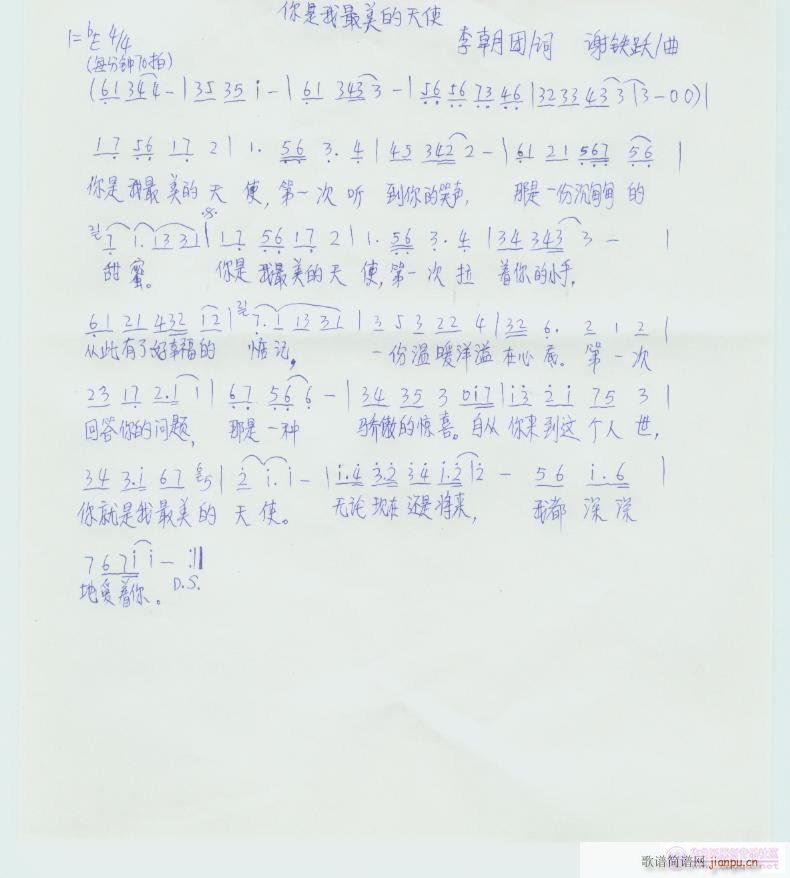 你是我最美的天使
1=♭E 4/4 李朝团/词 谢铁跃/曲
(每分钟70拍)
(61 344 - | 35 35 i - | 61 343 3 - | 56 56 73 46 | 32 33 43 3 | 3 - 0 0) |
17 56 17 2 | 1. 56 3. 4 | 45 342 2 - | 61 21 567 56 |
你是我最美的天使,第一次听到你的笑声, 那是一份沉甸甸的
7 1. 13 31 | 17 56 17 2 | 1. 56 3. 4 | 34 343 3 - |
甜蜜。 你是我最美的天使,第一次拉着你的小手,
61 21 432 12 | 7. 1 13 31 | 3 5 3 22 4 | 32 6. 2 1 2 |
从此有了好幸福的惦记。 一份温暖洋溢在心底。第一次
23 17 2.1 1 | 67 56 6 - | 34 35 3 0i7 | i3 2i 75 3 |
回答你的问题, 那是一种 骄傲的惊喜。自从你来到这个人世,
34 3.i 67 5 | 2 i. i - | i.4 3.2 34 i.2 | 2 - 56 i.6 |
你就是我最美的天使。 无论现在还是将来, 我都深深
7 67i i - :||
地爱着你。 D.S.
歌谱简谱网 jianpu.cn